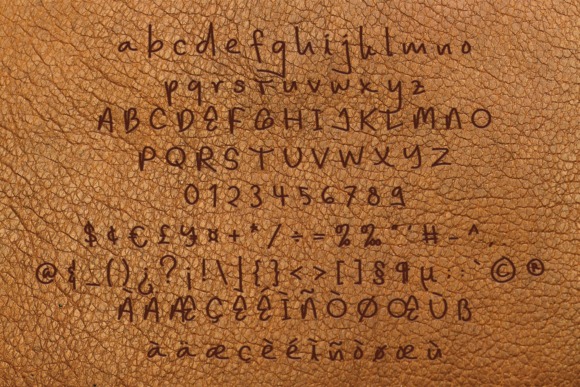 a b c d e f g h i j k l m n o
p q r s t u v w x y z
A B C D E F G H I J K L M N O
P Q R S T U V W X Y Z
0 1 2 3 4 5 6 7 8 9
$ ¢ € £ ¥ ¤ + * / ÷ = % ‰ " ' # - ^ ,
@ { _ ( ) ¿ ? ¡ ! \ ] { } < > [ ] § ¶ µ : : ` © ®
À Ä Æ Ç È É Ì Ñ Ò Ø Œ Ù ß
à ä æ ç è é ì ñ ò ø œ ù